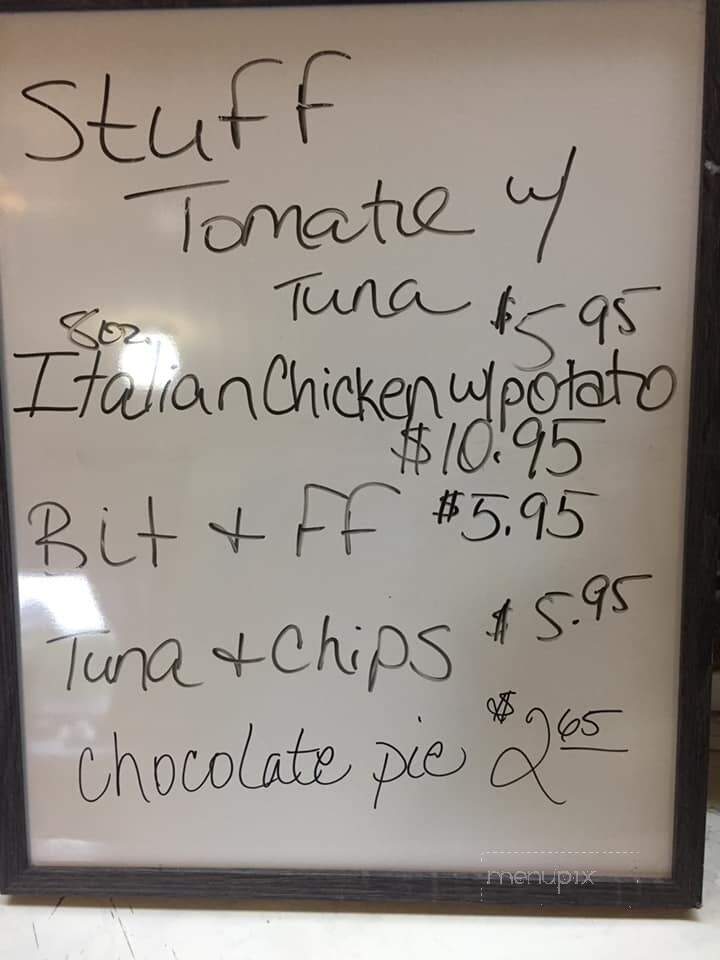 Stuff
Tomatoe w/
Tuna $5.95
8oz.
Italian Chicken w/potato
$10.95
Blt + FF $5.95
Tuna + Chips $5.95
chocolate pie $2 65
menupix